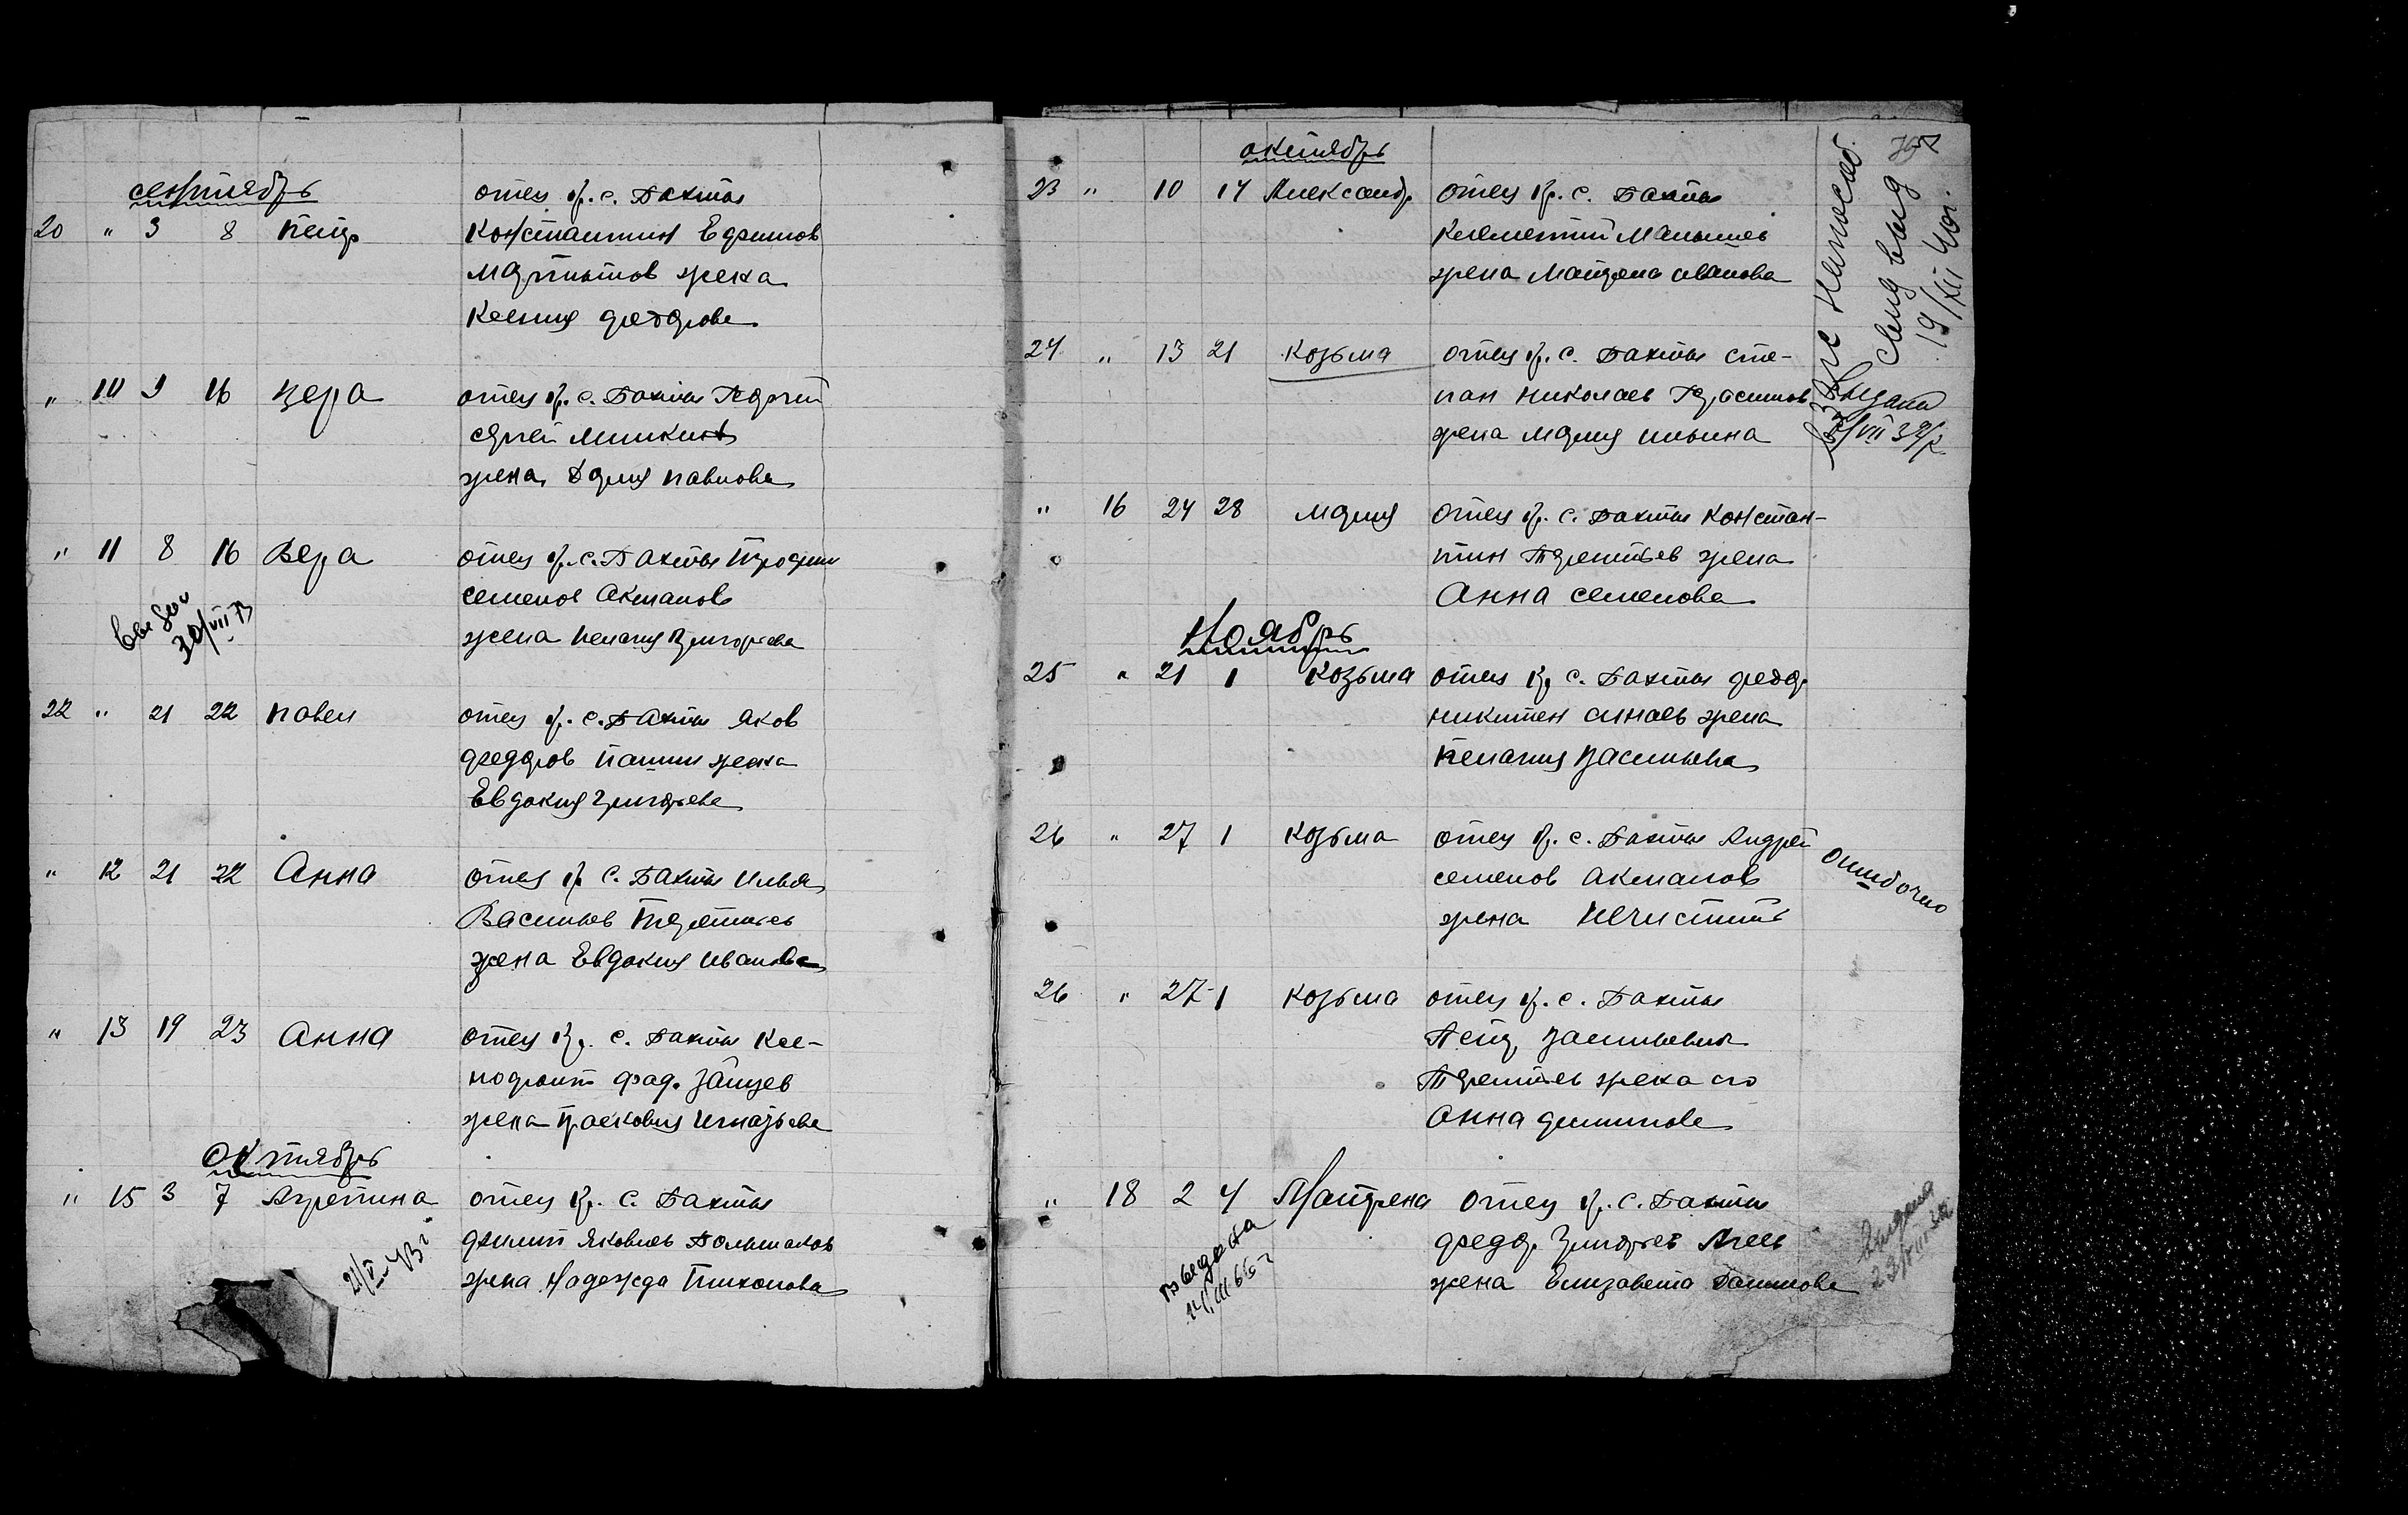 сентябрь
отец кр. с. Бахты
20 " 3 8 Петр
Константин Ефимов
Мартынов жена
Ксения Федорова
" 10 9 16 Вера
отец кр. с. Бахты Георгий
Сергеев Минкин
жена Дария Павлова
" 11 8 16 Вера
отец кр. с. Бахты Трофим
Семенов Акманов
жена Пелагия Григорьева
30/VII
22 " 21 22 Павел
отец кр. с. Бахты Яков
Федоров жена
Евдокия Григорьева
" 12 21 22 Анна
отец кр. с. Бахты Илья
Васильев Терентьев
жена Евдокия Иванова
" 13 19 23 Анна
отец кр. с. Бахты Ксе-
нофонт Фад. Зайцев
жена Праск​овия Игнатьева
Октябрь
" 15 3 7 Агрепина
отец кр. с. Бахты
Филип Яковлев Большаков
жена Надежда Тихонова
21/V 43 г
октябрь
23 " 10 14 Александр
отец кр. с. Бахты
Клементий Малышев
жена Матрена Иванова
24 " 13 21 Козьма
отец кр. с. Бахты Сте-
пан Николаев Герасимов
жена Мария Ильина
" 16 24 28 Мария
отец кр. с. Бахты Констан-
тин Терентьев жена
Анна Семенова
Ноябрь
25 " 21 1 Козьма
отец кр. с. Бахты Федор
Никитен жена
Пелагия Васильева
26 " 27 1 Козьма
отец кр. с. Бахты Андрей
Семенов Акманов
жена
ошибочно
26 " 27 1 Козьма
отец кр. с. Бахты
Петр Васильевич
Терентьев жена его
Анна Филипова
" 18 2 4 Матрена
отец кр. с. Бахты
Федор Григорьев Агеев
жена Елизавета Данилова
выдана
в ЗАГС
свид выд
19/XI 40г.
Выдана
VII 39/г.
Выдана